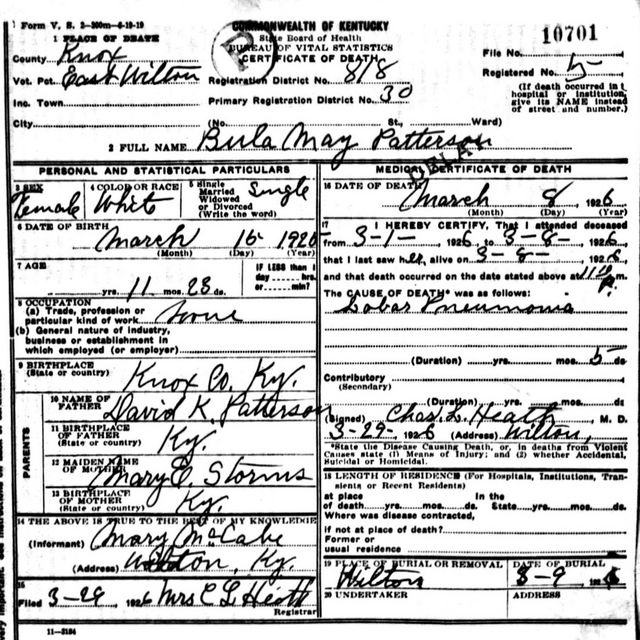 Form V. S. 2-200m-6-19-19
COMMONWEALTH OF KENTUCKY
State Board of Health
BUREAU OF VITAL STATISTICS
CERTIFICATE OF DEATH
10701
1 PLACE OF DEATH
County Knox
File No.
Vot. Pct. East Wilton
Registration District No. 818
Registered No. 5
Inc. Town
Primary Registration District No. 30
(If death occurred in a hospital or institution, give its NAME instead of street and number.)
City (No. St., Ward)
2 FULL NAME Bula May Patterson
DELAY
PERSONAL AND STATISTICAL PARTICULARS
3 SEX Female
4 COLOR OR RACE White
5 Single Married Widowed or Divorced (Write the word) Single
6 DATE OF BIRTH March 15 1920
(Month) (Day) (Year)
7 AGE yrs. 11 mos. 23 ds.
IF LESS than 1 day hrs. or min.?
8 OCCUPATION
(a) Trade, profession or particular kind of work None
(b) General nature of industry, business or establishment in which employed (or employer)
9 BIRTHPLACE (State or country) Knox Co, Ky.
PARENTS
10 NAME OF FATHER David K Patterson
11 BIRTHPLACE OF FATHER (State or country) Ky.
12 MAIDEN NAME OF MOTHER Mary E. Storms
13 BIRTHPLACE OF MOTHER (State or country) Ky.
14 THE ABOVE IS TRUE TO THE BEST OF MY KNOWLEDGE
(Informant) Mary McCabe
(Address) Wilton, Ky.
15
Filed 3-29 1926 Mrs C L Heath
Registrar
11-3184
MEDICAL CERTIFICATE OF DEATH
16 DATE OF DEATH March 8 1926
(Month) (Day) (Year)
17 I HEREBY CERTIFY, That I attended deceased
from 3-1- 1926 to 3-8- 1926
that I last saw her alive on 3-8- 1926
and that death occurred on the date stated above at 11 P.m.
The CAUSE OF DEATH* was as follows:
Lobar Pneumonia
(Duration) yrs. mos. 5 ds.
Contributory
(Secondary)
(Duration) yrs. mos. ds.
(Signed) Chas. L. Heath M. D.
3-29- 1926 (Address) Wilton,
*State the Disease Causing Death, or, in deaths from Violent Causes state (1) Means of Injury; and (2) whether Accidental, Suicidal or Homicidal.
18 LENGTH OF RESIDENCE (For Hospitals, Institutions, Transients or Recent Residents)
at place of death yrs. mos. ds. In the State yrs. mos. ds.
Where was disease contracted,
if not at place of death?
Former or
usual residence
19 PLACE OF BURIAL OR REMOVAL Wilton
DATE OF BURIAL 3-9 1926
20 UNDERTAKER
ADDRESS